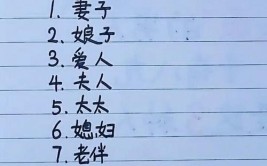 1. 妻子
2. 娘子
3. 爱人
4. 夫人
5. 太太
6. 媳妇
7. 老伴